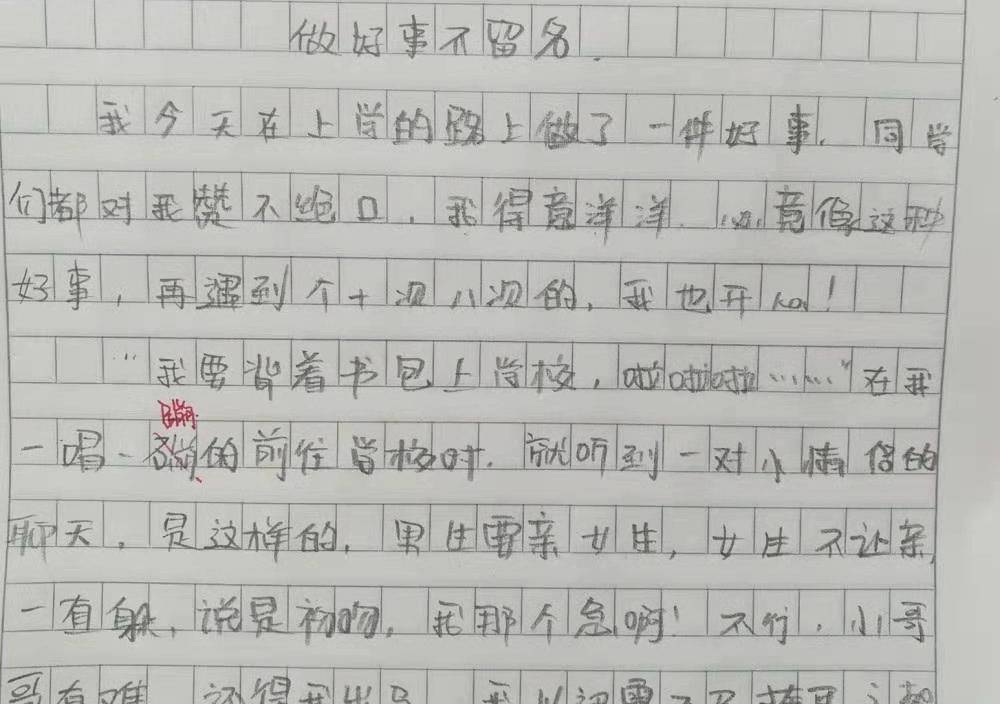 做好事不留名.
我今天在上学的路上做了一件好事.同学
们都对我赞不绝口,我得意洋洋.心竟像这种
好事,再遇到个十次八次的,我也开心!
"我要背着书包上学校,啦啦啦……"在我
一唱一蹦的前往学校时.就听到一对小情侣的
蹦
聊天,是这样的,男生要亲女生,女生不让亲,
一有躲,说是初吻,我那个急啊!不行,小哥
哥有难 还得我出马 我以迅雷不及掩耳之